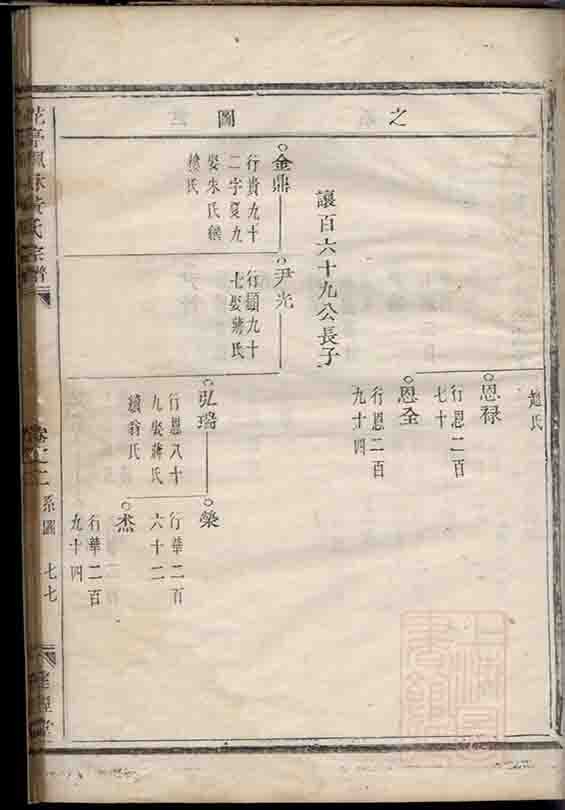 之圖
趙氏
恩禄
行恩二百
七十
恩全
行恩二百
九十四
讓百六十九公長子
金鼎
行貴九十
二字夏九
娶朱氏繼
氏
尹光
行顯九十
七娶蔣氏
弘瑞
行恩八十
九娶蔣氏
續翁氏
榮
行華二百
六十二
杰
行華二百
九十四
黃氏宗譜
卷二
系圖
七七
堂
上海圖書館